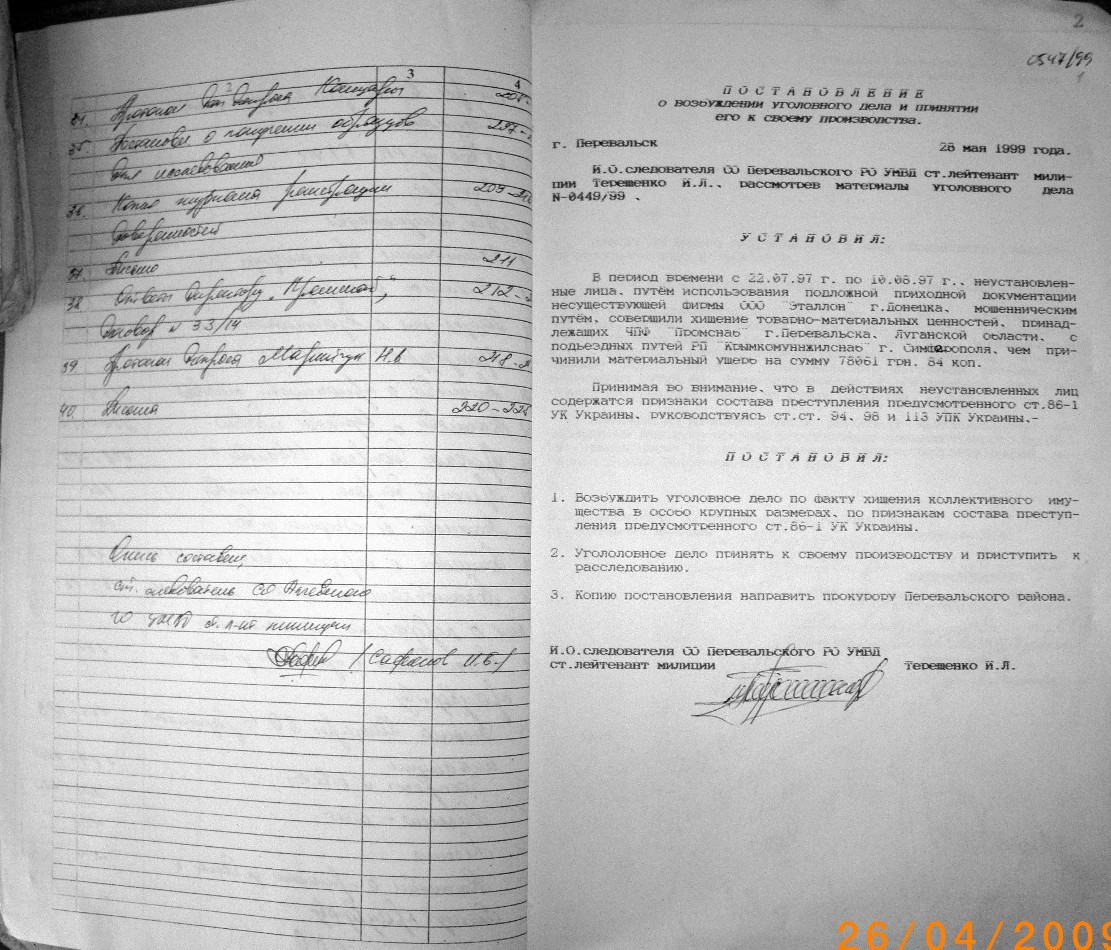 3
4
34. Протокол доп. допроса
35. Постановл о получении образцов
297-
для исследований
36. Копия журнала регистрации
209-210
доверенностей
37. Письмо
211
38. Ответ директору
212-
договор N 33/14
39. Протокол допроса Н.В
218-2
40. Письма
220-225
Опись составил,
ст. следователь СО
ГО УМВД ст. л-нт милиции
/Сафонов И.Б./
2
0547/99
1
ПОСТАНОВЛЕНИЕ
о возбуждении уголовного дела и принятии
его к своему производства.
г. Перевальск 28 мая 1999 года.
И.О.следователя СО Перевальского РО УМВД ст.лейтенант мили-
ции Терещенко И.Л., рассмотрев материалы уголовного дела
N-0449/99 .
УСТАНОВИЛ:
В период времени с 22.07.97 г. по 10.08.97 г., неустановлен-
ные лица, путём использования подложной приходной документации
несуществующей фирмы ООО "Эталлон" г.Донецка, мошенническим
путём, совершили хищение товарно-материальных ценностей, принад-
лежащих ЧПФ "Промснаб" г.Перевальска, Луганской области, с
подьездных путей РП "Крымкоммунжилснаб" г. Симферополя, чем при-
чинили материальный ущерб на сумму 78061 грн. 84 коп.
Принимая во внимание, что в действиях неустановленных лиц
содержатся признаки состава преступления предусмотренного ст.86-1
УК Украины, руководствуясь ст.ст. 94, 98 и 113 УПК Украины,-
ПОСТАНОВИЛ:
1. Возбуждить уголовное дело по факту хищения коллективного иму-
щества в особо крупных размерах, по признакам состава преступ-
ления предусмотренного ст.86-1 УК Украины.
2. Угололовное дело принять к своему производству и приступить к
расследованию.
3. Копию постановления направить прокурору Перевальского района.
И.О.следователя СО Перевальского РО УМВД
ст.лейтенант милиции Терещенко И.Л.
26/04/2009